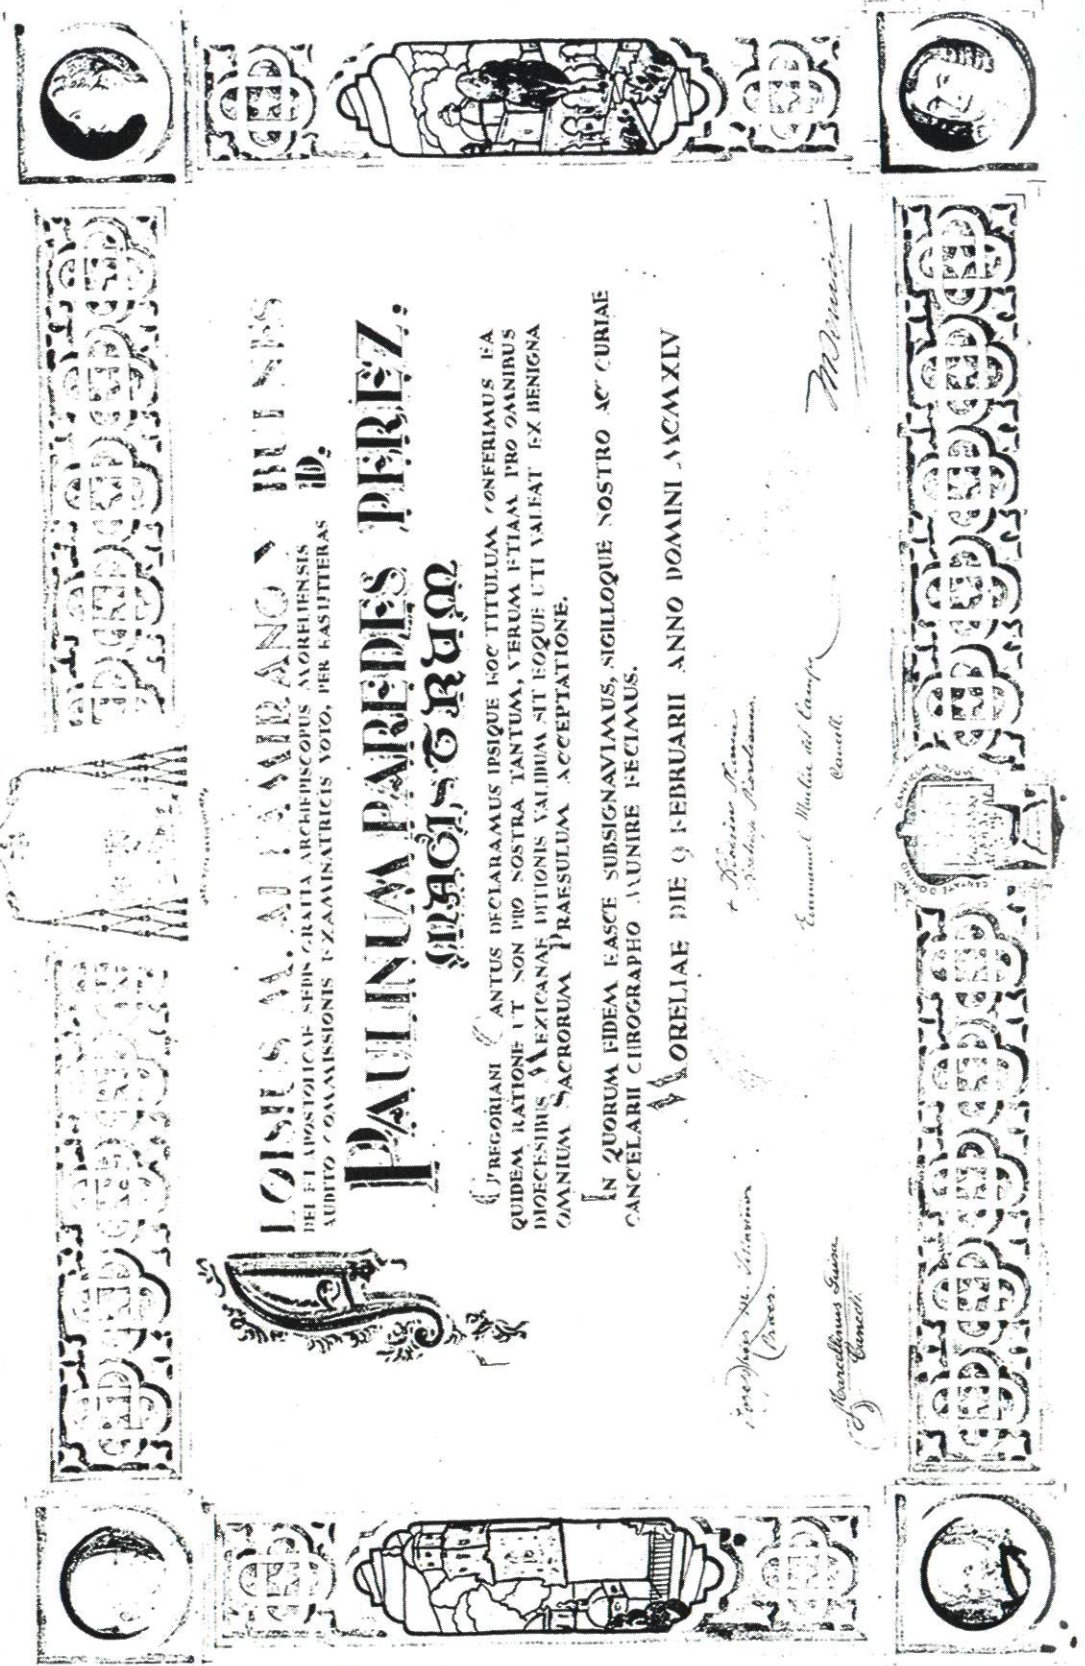 ALOISIUS M. ALTAMIRANO Y BULNES
DEI ET APOSTOLICAE SEDIS GRATIA ARCHIEPISCOPUS MORELIENSIS
AUDITO COMMISSIONIS EXAMINATRICIS VOTO, PER HAS LITTERAS D.
PAULINUM PAREDES PEREZ,
MAGISTRUM
GREGORIANI CANTUS DECLARAMUS IPSIQUE HOC TITULUM CONFERIMUS EA
QUIDEM RATIONE UT NON PRO NOSTRA TANTUM, VERUM ETIAM PRO OMNIBUS
DIOECESIBUS MEXICANAE DITIONIS VALIDUM SIT EOQUE UTI VALEAT EX BENIGNA
OMNIUM SACRORUM PRAESULUM ACCEPTATIONE.
IN QUORUM FIDEM HASCE SUBSIGNAVIMUS, SIGILLOQUE NOSTRO AC CURIAE
CANCELARII CHIROGRAPHO MUNIRE FECIMUS.
MORELIAE DIE 9 FEBRUARII ANNO DOMINI MCMXLV
Praeses.
Marcellinus Guisa
Cancell.
Emmanuel Martin del Campo
Consill.